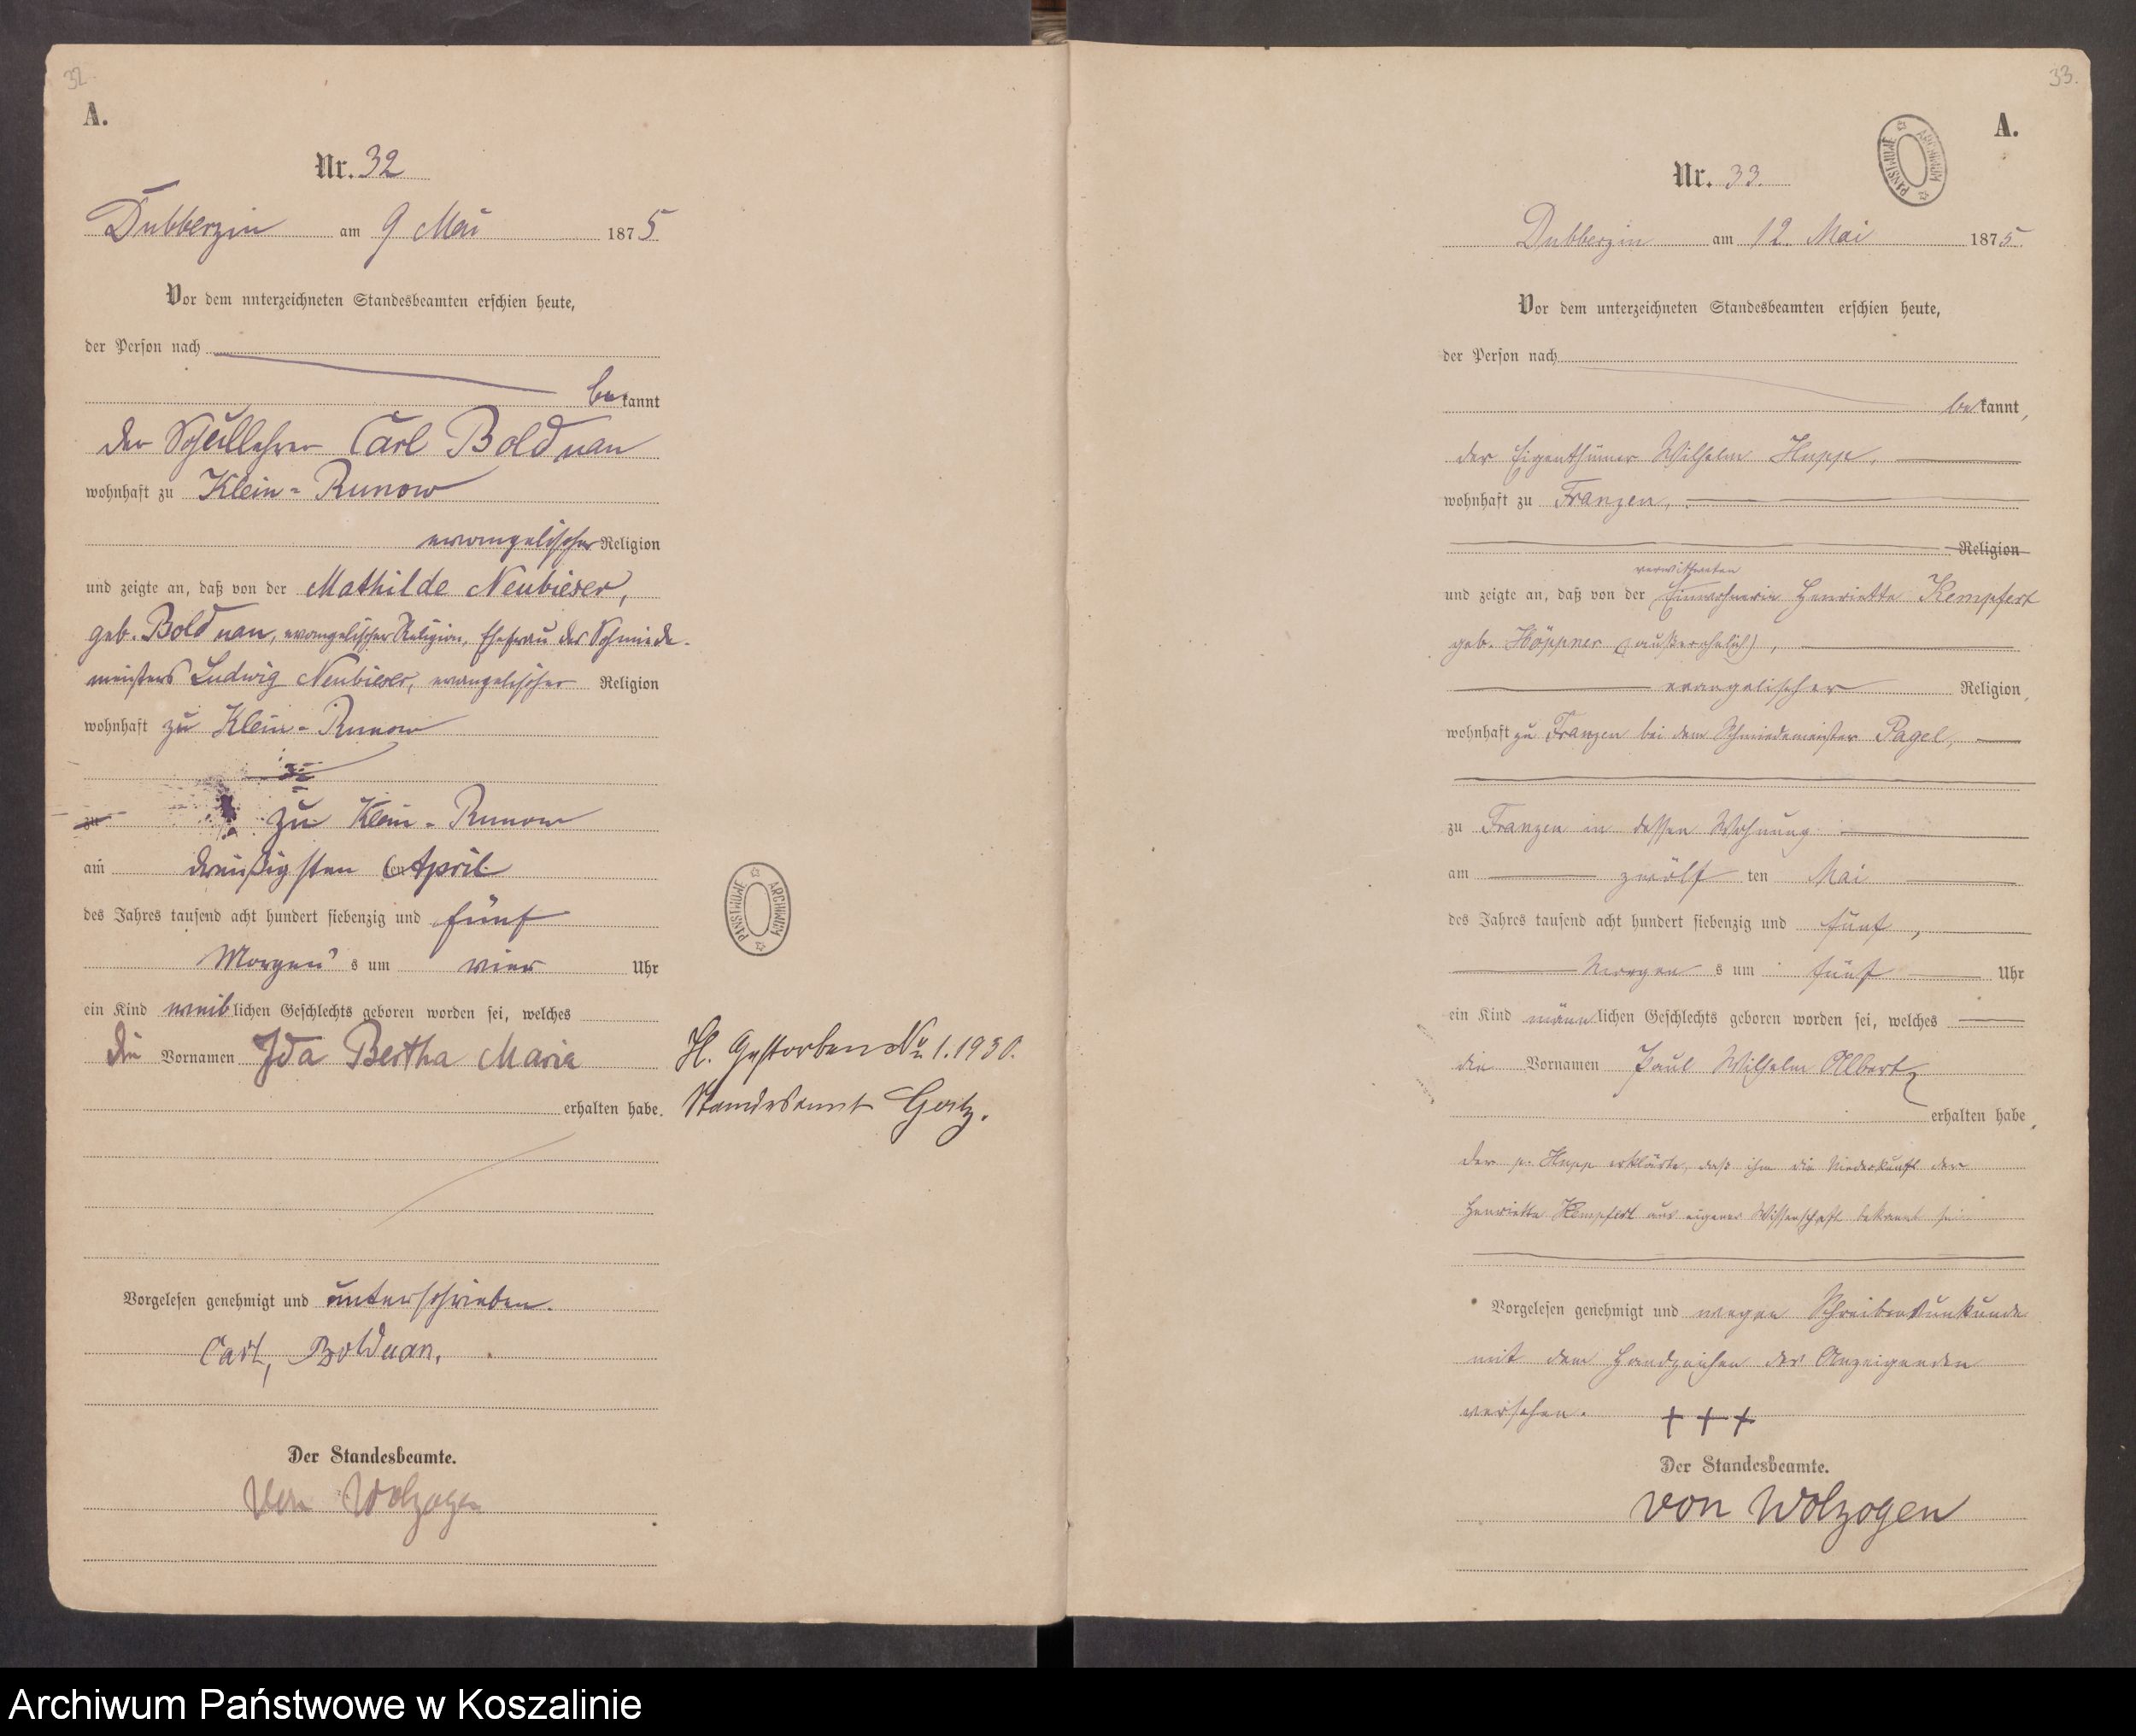 32.
A.
Nr. 32
Dubberzin am 9 Mai 1875
Vor dem unterzeichneten Standesbeamten erschien heute,
der Person nach
bekannt
der Schullehrer Carl Bolduan
wohnhaft zu Klein-Runow
evangelischer Religion
und zeigte an, daß von der Mathilde Neubieser,
geb. Bolduan, evangelischer Religion, Ehefrau des Schmiede-
meisters Ludwig Neubieser, evangelischer Religion
wohnhaft zu Klein-Runow
zu zu Klein-Runow
am dreißigsten ten April
des Jahres tausend acht hundert siebenzig und fünf
Morgens um vier Uhr
ein Kind weiblichen Geschlechts geboren worden sei, welches
die Vornamen Ida Bertha Maria
erhalten habe.
H. Gestorben Nr. 1. 1930.
Standesamt
Vorgelesen genehmigt und unterschrieben.
Carl, Bolduan.
Der Standesbeamte.
von Wolzogen
ARCHIWUM PAŃSTWOWE
33.
A.
ARCHIWUM PAŃSTWOWE
Nr. 33.
Dubberzin am 12. Mai 1875.
Vor dem unterzeichneten Standesbeamten erschien heute,
der Person nach
bekannt,
der Eigenthümer Wilhelm Hupp,
wohnhaft zu Franzen,
Religion
verwittweten
und zeigte an, daß von der Einwohnerin Henriette Kempfert
geb. Höppner (außerehelich),
evangelischer Religion,
wohnhaft zu Franzen bei dem Schmiedemeister Pagel,
zu Franzen in dessen Wohnung
am zwölf ten Mai
des Jahres tausend acht hundert siebenzig und fünf,
Morgens um fünf Uhr
ein Kind männlichen Geschlechts geboren worden sei, welches
die Vornamen Paul Wilhelm Albert
erhalten habe.
Der p. Hupp erklärte, daß ihm die Niederkunft der
Henriette Kempfert aus eigener Wissenschaft bekannt sei
Vorgelesen genehmigt und wegen Schreibensunkunde
mit dem Handzeichen des Anzeigenden
versehen. + + +
Der Standesbeamte.
von Wolzogen
Archiwum Państwowe w Koszalinie